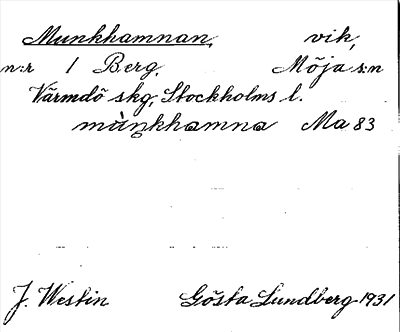 Munkhamnan, vik,
n:r 1 Berg, Möja s:n
Värmdö skg, Stockholms l.
mùŋkhamna Ma 83
J. Westin Gösta Lundberg 1931